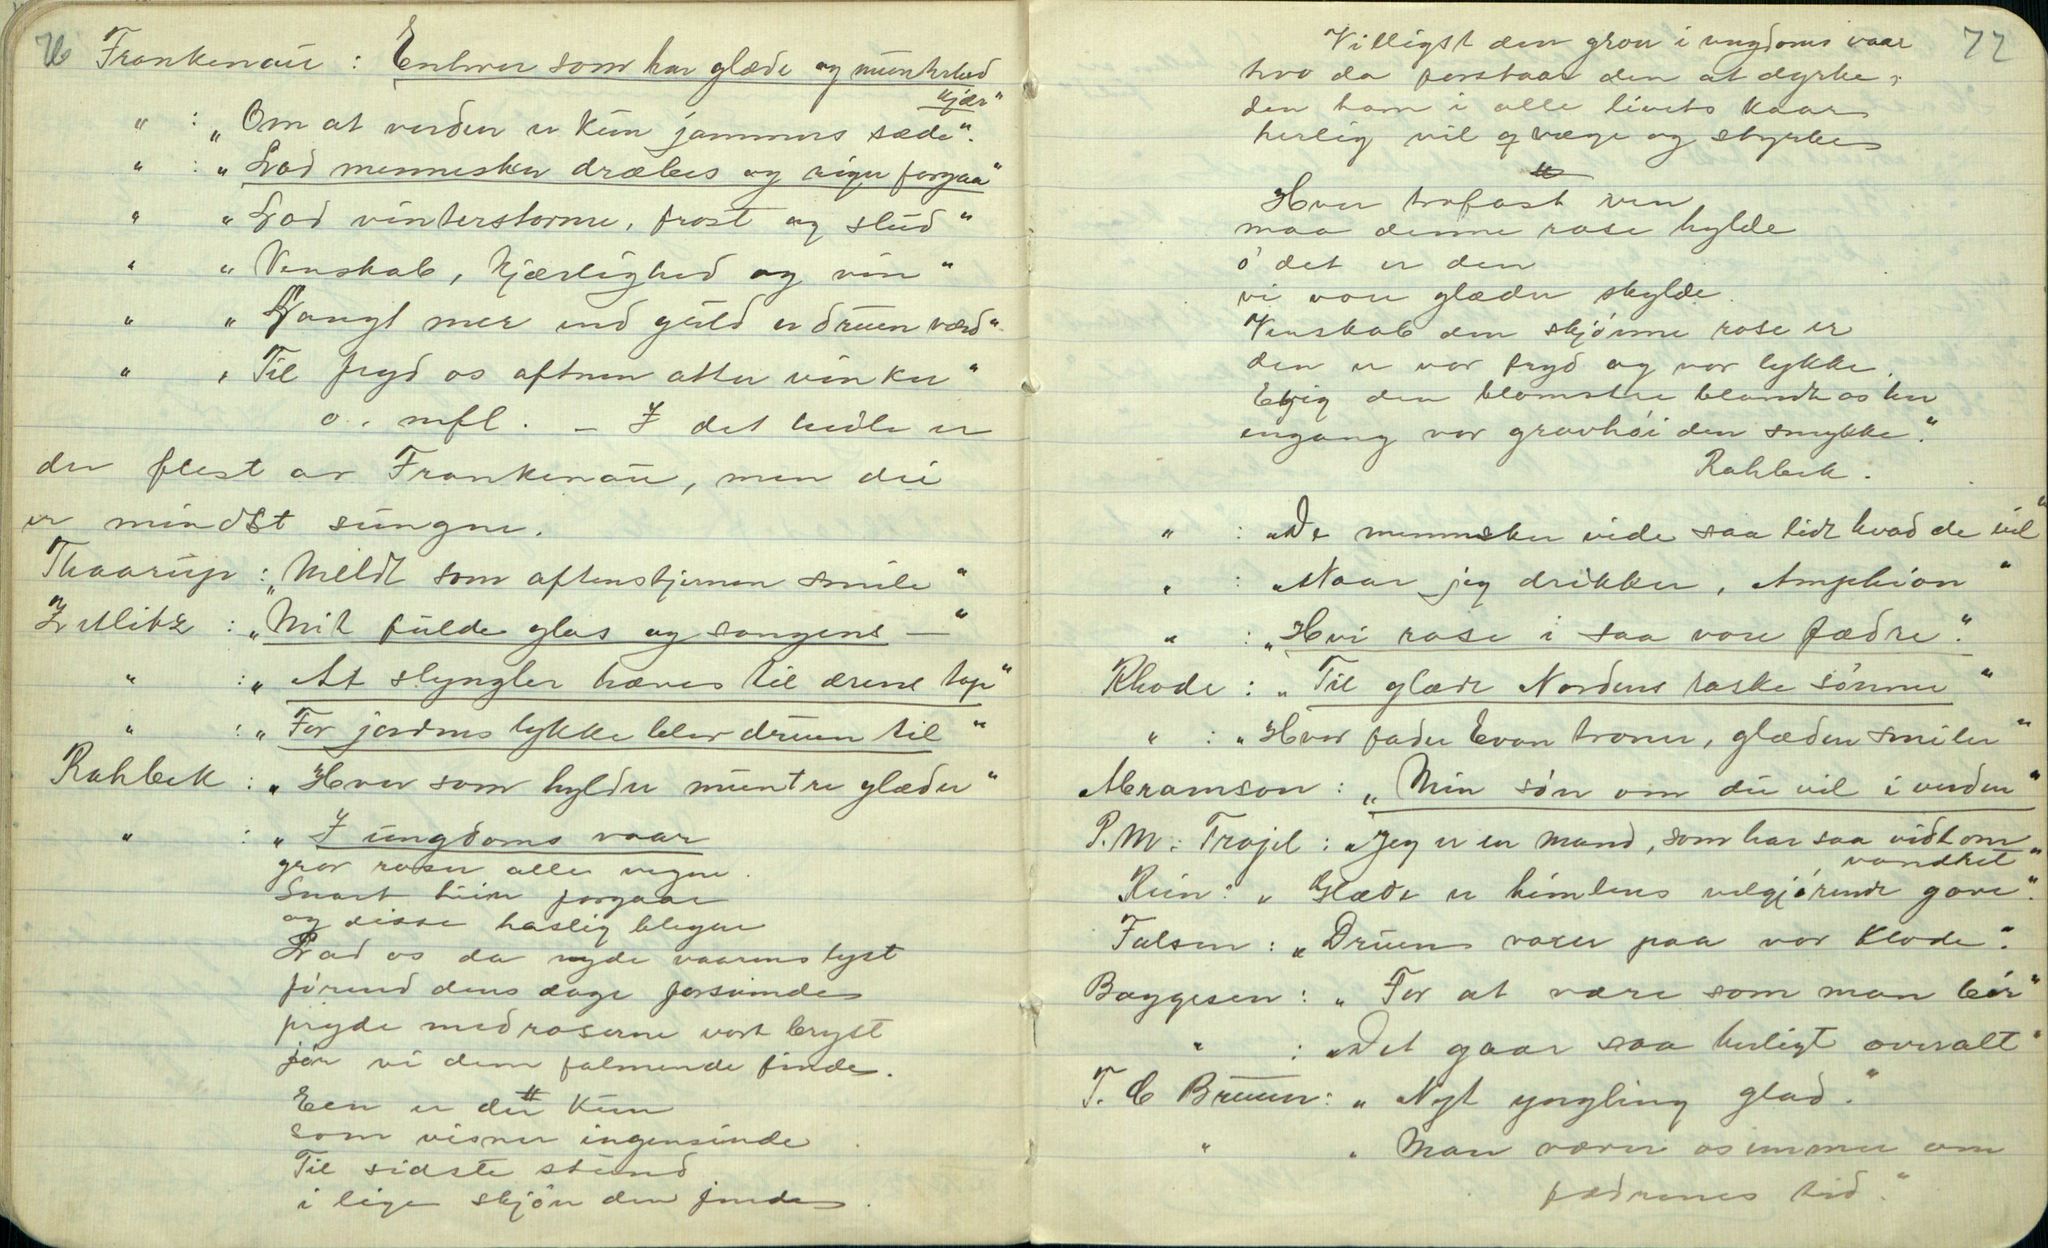 76
Frankenau : Enhver som har glæde og munterhed
kjær"
" : „Om at verden er kun jammers sæde".
" : „Lad mennesker dræbes og riger forgaa"
" „Lad vinterstorme, frost og slud"
" „Venskab, kjærlighed og vin"
" „Langt mer end guld er druen værd".
" „Til fryd os aftnen atter vinker"
o. mfl. – I det hele er
der flest av Frankenau, men di
er mindst sungne.
Thaarup : „Mildt som aftenstjernen smile"
Zetlitz : „Mit fulde glas og sangens — "
" : „At slyngler hæves til ærens top"
" : „For jordens lykke blev druen til"
Rahbek : „Hver som hylder muntre glæder"
" : „I ungdoms vaar
gror roser alle vegne.
Snart hiin forgaar
og disse hastig blegne
Lad os da nyde vaarens lyst
førend dens dage forsvinde
pryde med roserne vort bryst
før vi dem falmende finde.
Een er der kun
som visner ingensinde
Til sidste stund
i lige skjøn den findes.
77
Villigst den gror i ungdoms vaar
hvo da forstaar den at dyrke,
den ham i alle livets kaar
herlig vil qvæge og styrke
Hver trofast ven
maa denne rose hylde
o det er den
vi vore glæder skylde.
Venskab den skjønne rose er
den er vor fryd og vor lykke.
Evig den blomstre blandt os her
engang vor gravhøi den smykke."
Rahbek.
" : „De mennesker vide saa lidt hvad de vil"
" : „Naar jeg drikker, Amphion"
" : „Hvi rose i saa vore fædre".
Rhode : „Til glæde Nordens raske sønner"
" : „Hvor fader Evan troner, glæden smiler"
Abramson : „Min søn om du vil i verden"
P.M. Trojel : „Jeg er en mand, som har saa vidt om
vandret"
Rein : „Glæde er himlens velgjørende gave".
Falsen : „Druen voxer paa vor klode".
Baggesen : „For at være som man bør"
" : „Det gaar saa herligt overalt"
T. C Bruun : „Nyt yngling glad."
" „Man raver os immer om
fædrenes tid."